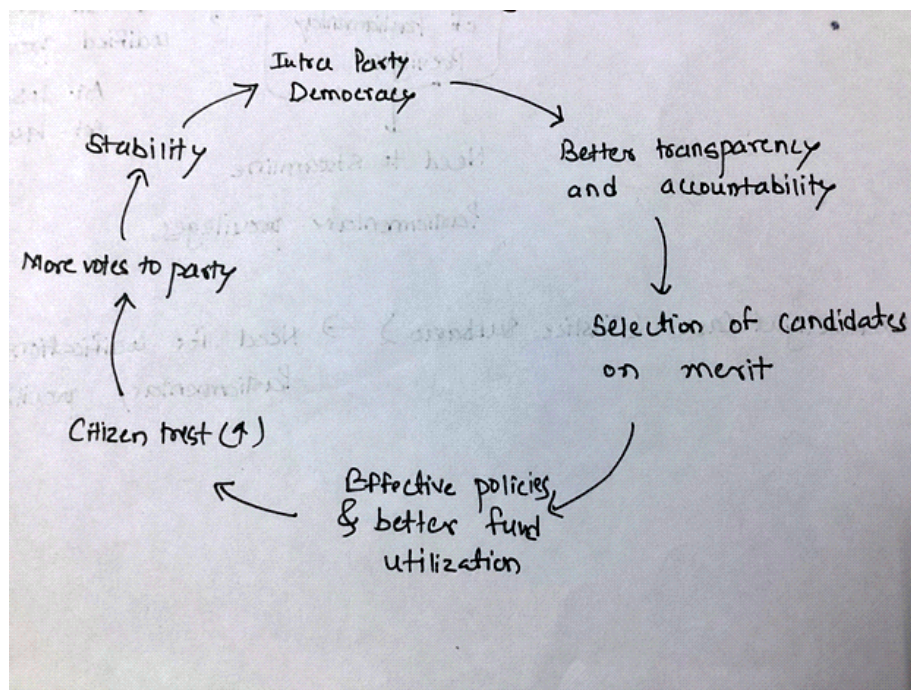 Intra Party
Democracy
Better transparency
and accountability
Selection of candidates
on merit
Effective policies
& better fund
utilization
Citizen trust (↑)
More votes to party
Stability